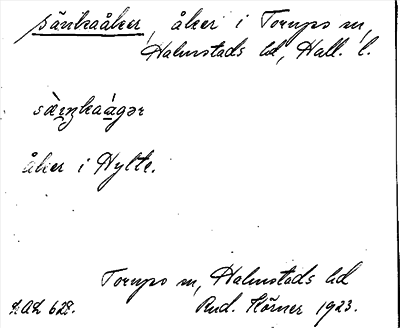 sänkaåker, åker i Torups sn,
Halmstads hd, Hall. l.
åker i Hylte.
Torups sn, Halmstads hd
Rud. Körner 1923.